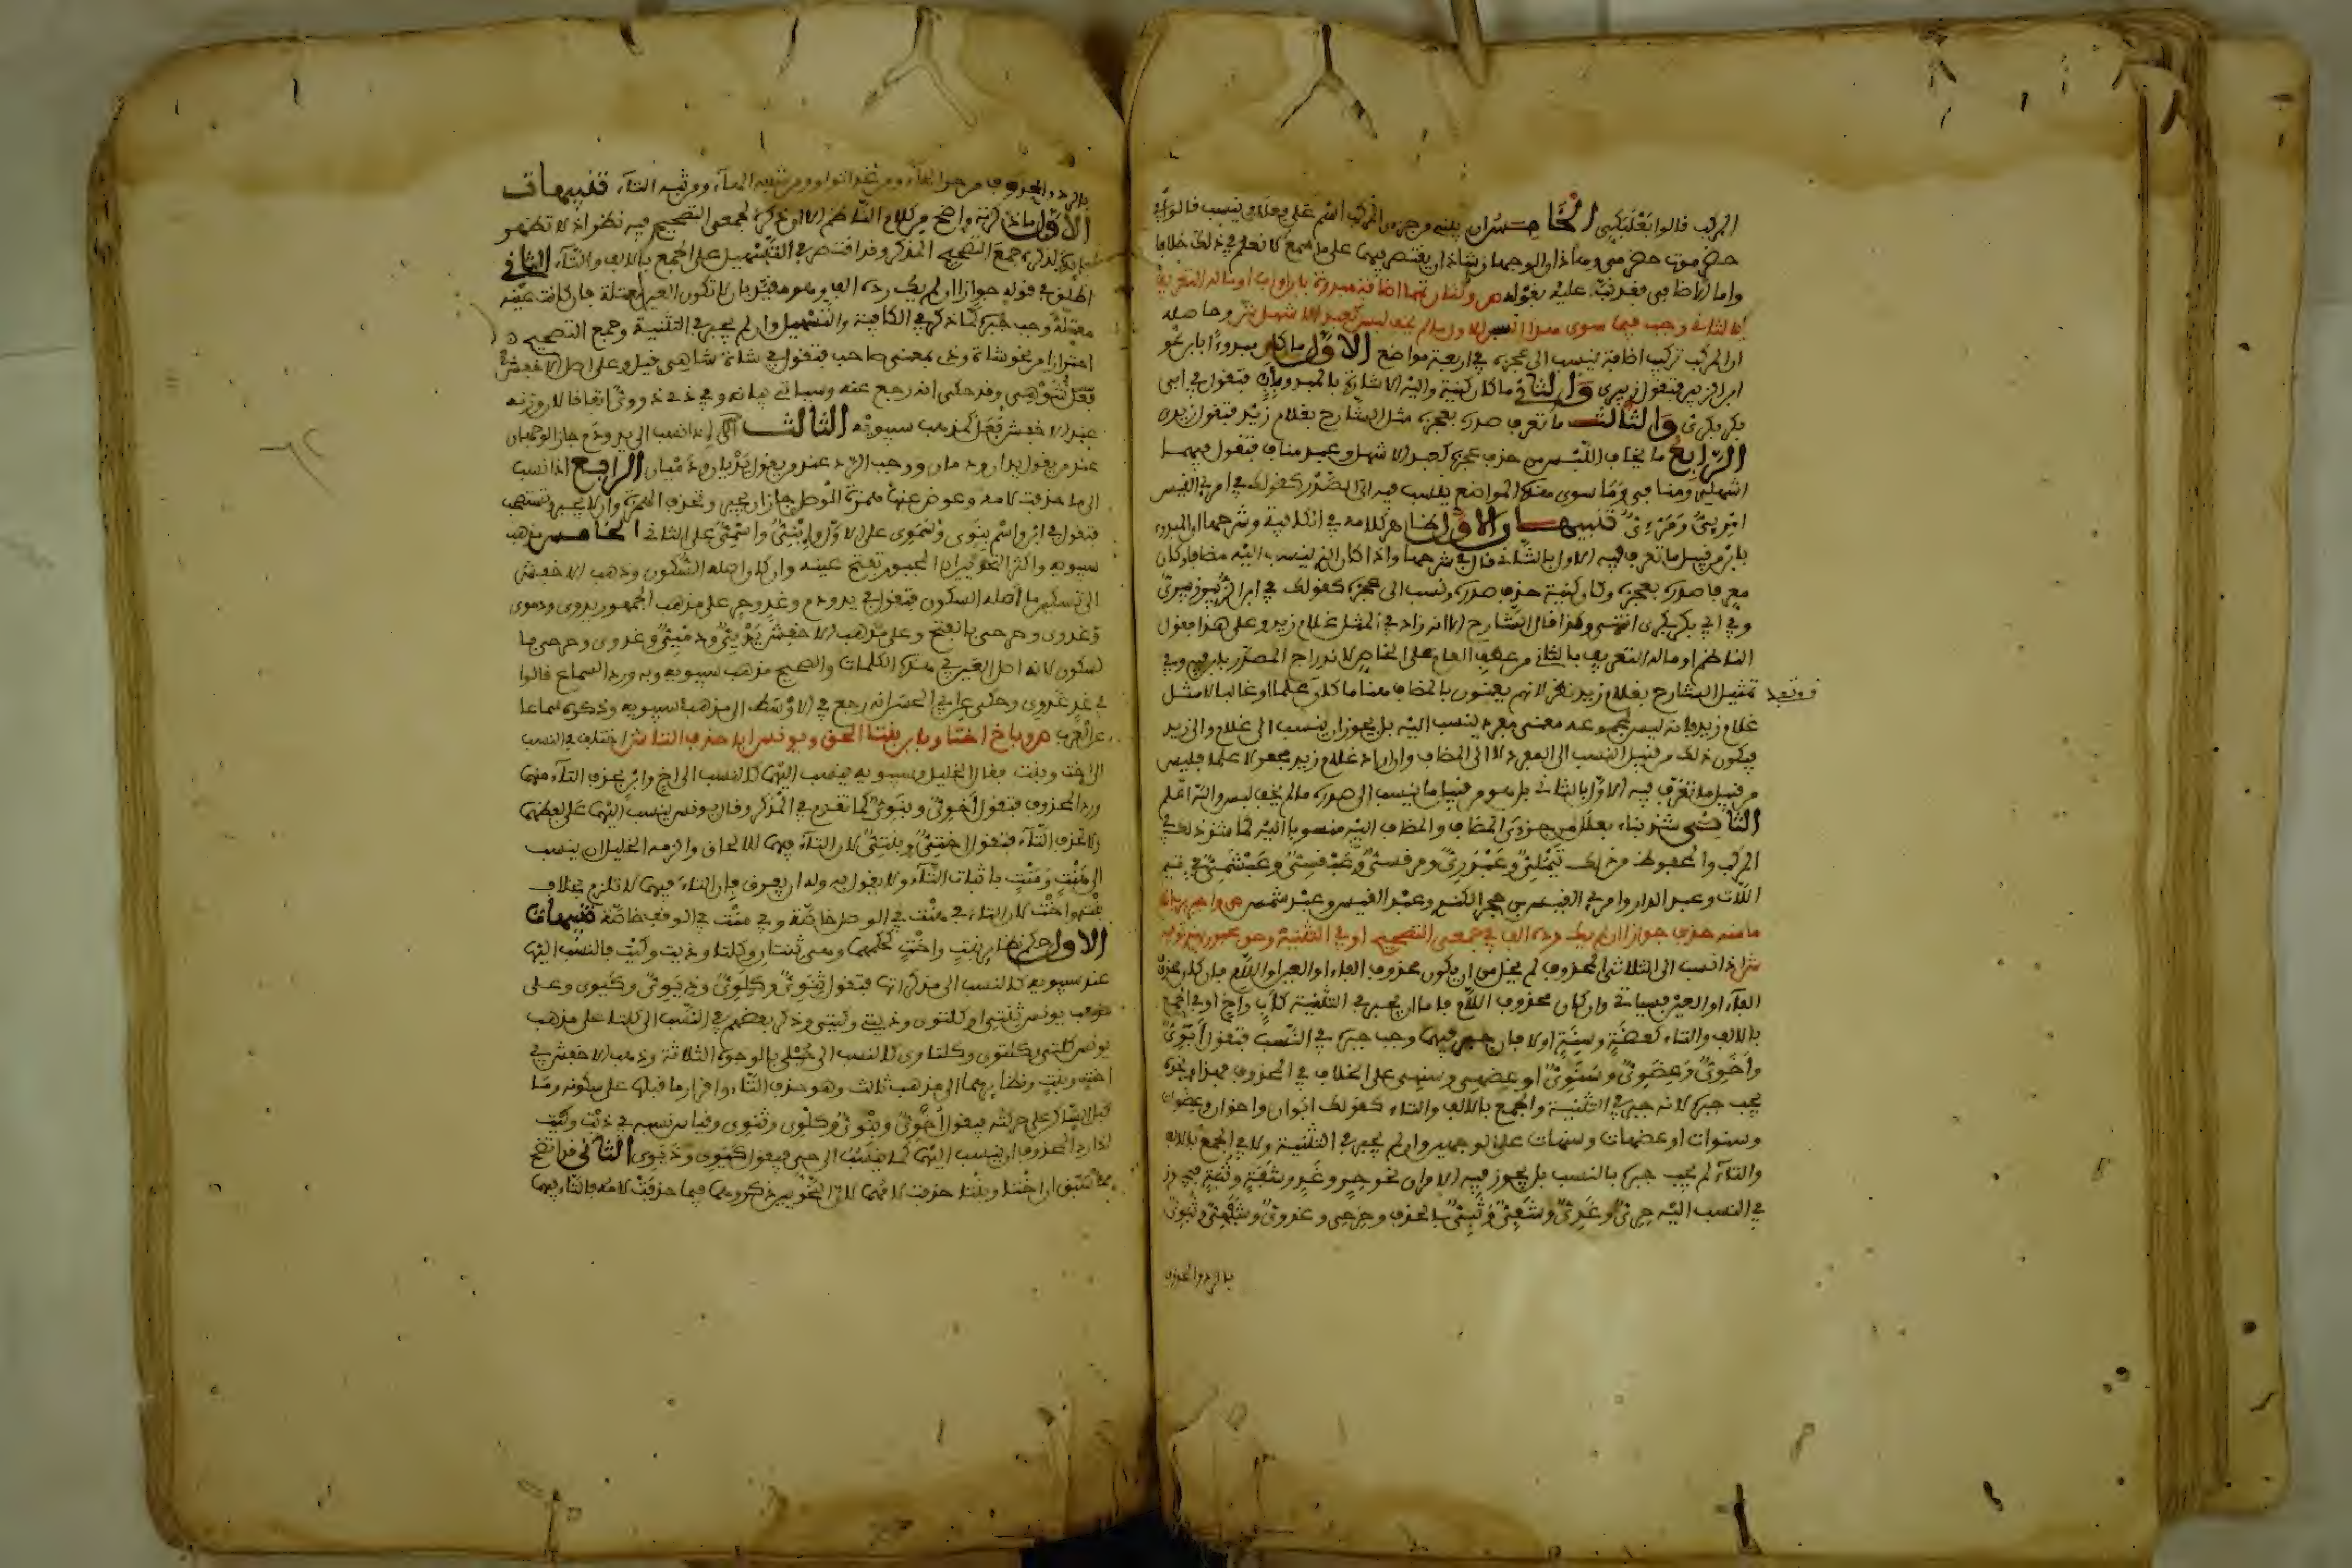 المركب قالوا بعلبكي الخامس ان يبنى من جزءي المركب اسم على فعلل وينسب قالوا في
حضرموت حضرمي وهذان الوجهان شاذان يقتصر فيهما على ما سمع لا نعلم في ذلك خلافا
واما الاضافي فقد نبه عليه بقوله ص ولثان تمما اضافة مبدوءة بابن او اب او ماله التعريف
بالثاني وجب فيما سوى هذا انسبن للاول ما لم يخف لبس كعبد الاشهل ش وحاصله
ان المركب تركيب اضافة ينسب الى عجزه في اربعة مواضع الاول ما كان مبدوءا بابن نحو
ابن الزبير فتقول زبيري والثاني ما كان كنية واليه الاشارة بالمبدو باب فتقول في ابي
بكر بكري والثالث ما تعرف صدره بعجزه مثل الشارح بغلام زيد فتقول زيدي
الرابع ما يخاف اللبس من حذف عجزه كعبد الاشهل وعبد مناف فتقول فيهما
اشهلي ومنافي وما سوى هذه المواضع ينسب فيه الى الصدر كقولك في امرئ القيس
امرئي ومرئي تنبيهان الاول ظاهر كلامه في الكافية وشرحها ان المبدو
بابن من قبيل ما تعرف فيه الاول بالثاني قال في شرحها واذا كان الذي ينسب اليه مضافا وكان
معرفا صدره بعجزه وكان كنية حذف صدره ونسب الى عجزه كقولك في ابن الزبير زبيري
وفي ابي بكر بكري انتهى وكذا قال الشارح الا انه زاد في المثل غلام زيد وعلى هذا فقول
الناظم او ماله التعريف بالثاني من عطف العام على الخاص لاندراج المصدر بابن فيه وفي
تمثيل الشارح بغلام زيد نظر لانهم يعنون بالمضاف هنا ما كان علما او غالبا لا مثل
غلام زيد فانه ليس لمجموعه معنى مفرد ينسب اليه بل يجوز ان ينسب الى غلام والى زيد
فيكون ذلك من قبيل النسب الى المفرد لا الى المضاف وان اراد غلام زيد مجعولا علما فليس
من قبيل ما تعرف فيه الاول بالثاني بل هو من قبيل ما ينسب الى صدره ما لم يخف لبس والله اعلم
الثاني شذ بناء فعلل من جزءي المضاف والمضاف اليه منسوبا اليه كما شذ ذلك في
المركب والمحفوظ من ذلك تيملي وعبدري ومرقسي وعبقسي وعبشمي في تيم
اللات وعبد الدار وامرئ القيس بن حجر الكندي وعبد القيس وعبد شمس ص واجبر برد اللام
ما منه حذف جوازا ان لم يك رده الف في جمعي التصحيح او في التثنية وحق مجبور بهذي توفيه
ش اذا نسب الى الثلاثي المحذوف لم يخل من ان يكون محذوف الفاء او العين او اللام فان كان محذوف
الفاء او العين فسياتي وان كان محذوف اللام فاما ان يجبر في التثنية كاب واخ او في الجمع
بالالف والتاء كعضة وسنة او لا فان جبر فيهما وجب جبره في النسب فتقول ابوي
واخوي وعضوي وسنوي او عضهي وسنهي على الخلاف في المحذوف فهذا ونحوه
يجب جبره لانه جبر في التثنية والجمع بالالف والتاء كقولك ابوان واخوان وعضوات
وسنوات او عضهات وسنهات على الوجهين وان لم يجبر في التثنية ولا في الجمع بالالف
والتاء لم يجب جبره بالنسب بل يجوز فيه الامران نحو حر وغد وشفة وثبة فيجوز
في النسب اليه حري وغدي وشفي وثبي بالحذف وحرحي وغدوي وشفهي وثبوي
بالرد والمحذوف
بالرد والمحذوف من حر الحاء ومن غد الواو ومن شفة الهاء ومن ثبة التاء تنبيهات
الاول ما ذكرته واضح من كلام الناظم الا ان ذكره لجمعي التصحيح فيه نظر اذ لا تظهر
فائدة لذكره جمع التصحيح المذكر وقد اقتصر في التسهيل على الجمع بالالف والتاء الثاني
اطلق في قوله جوازا ان لم يك رده الف وهو مقيد بان لا تكون العين معتلة فان كانت عينه
معتلة وجب جبره كما ذكره في الكافية والتسهيل وان لم يجبر في التثنية وجمع التصحيح
احترازا من نحو شاة وذي بمعنى صاحب فتقول في شاة شاهي وعلى اصل الاخفش
فعل شوهي وقد حكى انه رجع عنه وسياتي بيانه وفي ذي ذووي اتفاقا لان وزنه
عند الاخفش فعل كمذهب سيبويه الثالث اذا نسب الى يد ودم جاز الوجهان
عند من يقول يدان ودمان ووجب الرد عند من يقول يديان ودميان الرابع اذا نسب
الى ما حذفت لامه وعوض عنها همزة الوصل جاز ان يجبر وتحذف الهمزة وان لا يجبر وتستصحب
فتقول في ابن واسم بنوي وسموي على الاول وابني واسمي على الثاني الخامس مذهب
سيبويه واكثر النحويين ان المجبور تفتح عينه وان كان اصله السكون وذهب الاخفش
الى تسكين ما اصله السكون فتقول في يد ودم وغد وحر على مذهب الجمهور يدوي ودموي
وغدوي وحرحي بالفتح وعلى مذهب الاخفش يديي ودميي وغدوي وحرحي بال
سكون لانه اصل العين في هذه الكلمات والصحيح مذهب سيبويه وبه ورد السماع قالوا
في غد غدوي وحكى عن ابي الحسن انه رجع في الاوسط الى مذهب سيبويه وذكره سماعا
عن العرب ص وباخ اختا وبابن بنتا الحق ويونس ابى حذف التا ش اختلف في النسب
الى اخت وبنت فقال الخليل وسيبويه ينسب اليهما كالنسب الى اخ وابن بحذف التاء منهما
ورد المحذوف فتقول اخوي وبنوي كما تقدم في المذكر وقال يونس ينسب اليهما على لفظهما
ولا تحذف التاء فتقول اختي وبنتي لان التاء فيهما للالحاق والزمه الخليل ان ينسب
الى هنت ومنت باثبات التاء ولا يقول به وله ان يفرق فان التاء فيهما لا تلزم بخلاف
بنت واخت لان التاء في هنت في الوصل خاصة وفي منت في الوقف خاصة تنبيهات
الاول حكم نظائر بنت واخت كحكمهما وهي ثنتان وكلتا وذيت وكيت فالنسب اليها
عند سيبويه كالنسب الى مذكراتها فتقول ثنوي وكلوي وذيوي وكيوي وعلى
مذهب يونس ثنتي او كلتوي وذيتي وكيتي وذكر بعضهم في النسب الى كلتا على مذهب
يونس كلتي وكلتوي وكلتاوي كالنسب الى حبلى بالوجوه الثلاثة وذهب الاخفش في
اخت وبنت ونظائرهما الى مذهب ثالث وهو حذف التاء واقرار ما قبلها على سكونه وما
قبل الساكن على حركته فيقول اخوي وبنوي وكلوي وثنوي وقياس نسبه في ذيت وكيت
اذا رد المحذوف ان ينسب اليهما كما ينسب الى حي فيقول كيوي وذيوي الثاني قد اتضح
مما سبق ان اختا وبنتا حذفت لامهما لان النحويين ذكروهما فيما حذفت لامه فالتاء فيهما